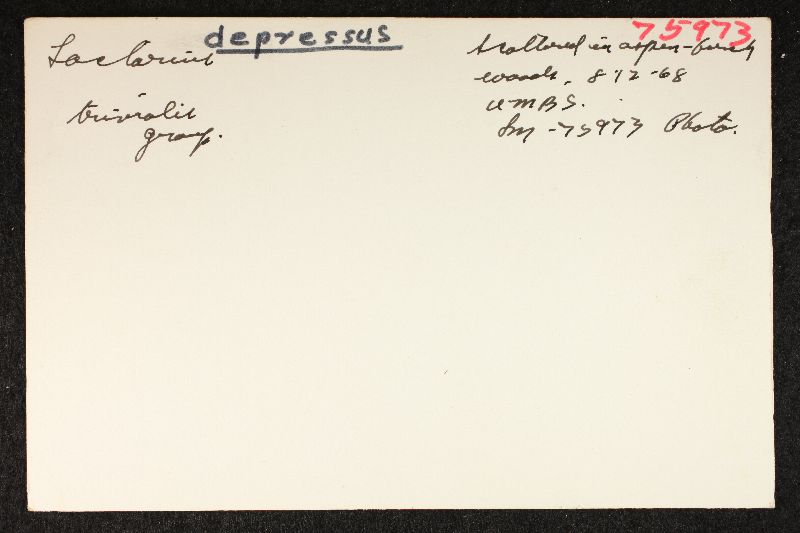 Lactarius depressus
trivialis
group.
75973
Scattered in aspen-birch
woods, 8-12-68
UMBS.
Sm-75973 Photo.